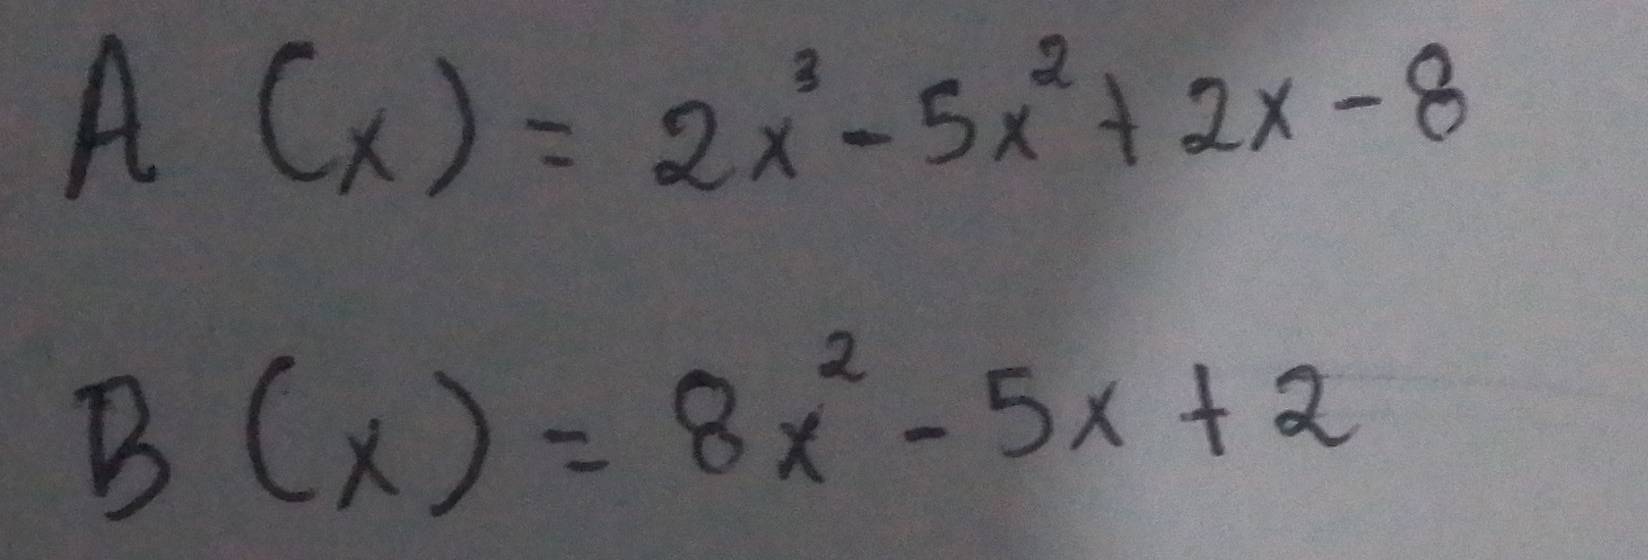 A (x) = 2x³ - 5x² + 2x - 8
B (x) = 8x² - 5x + 2